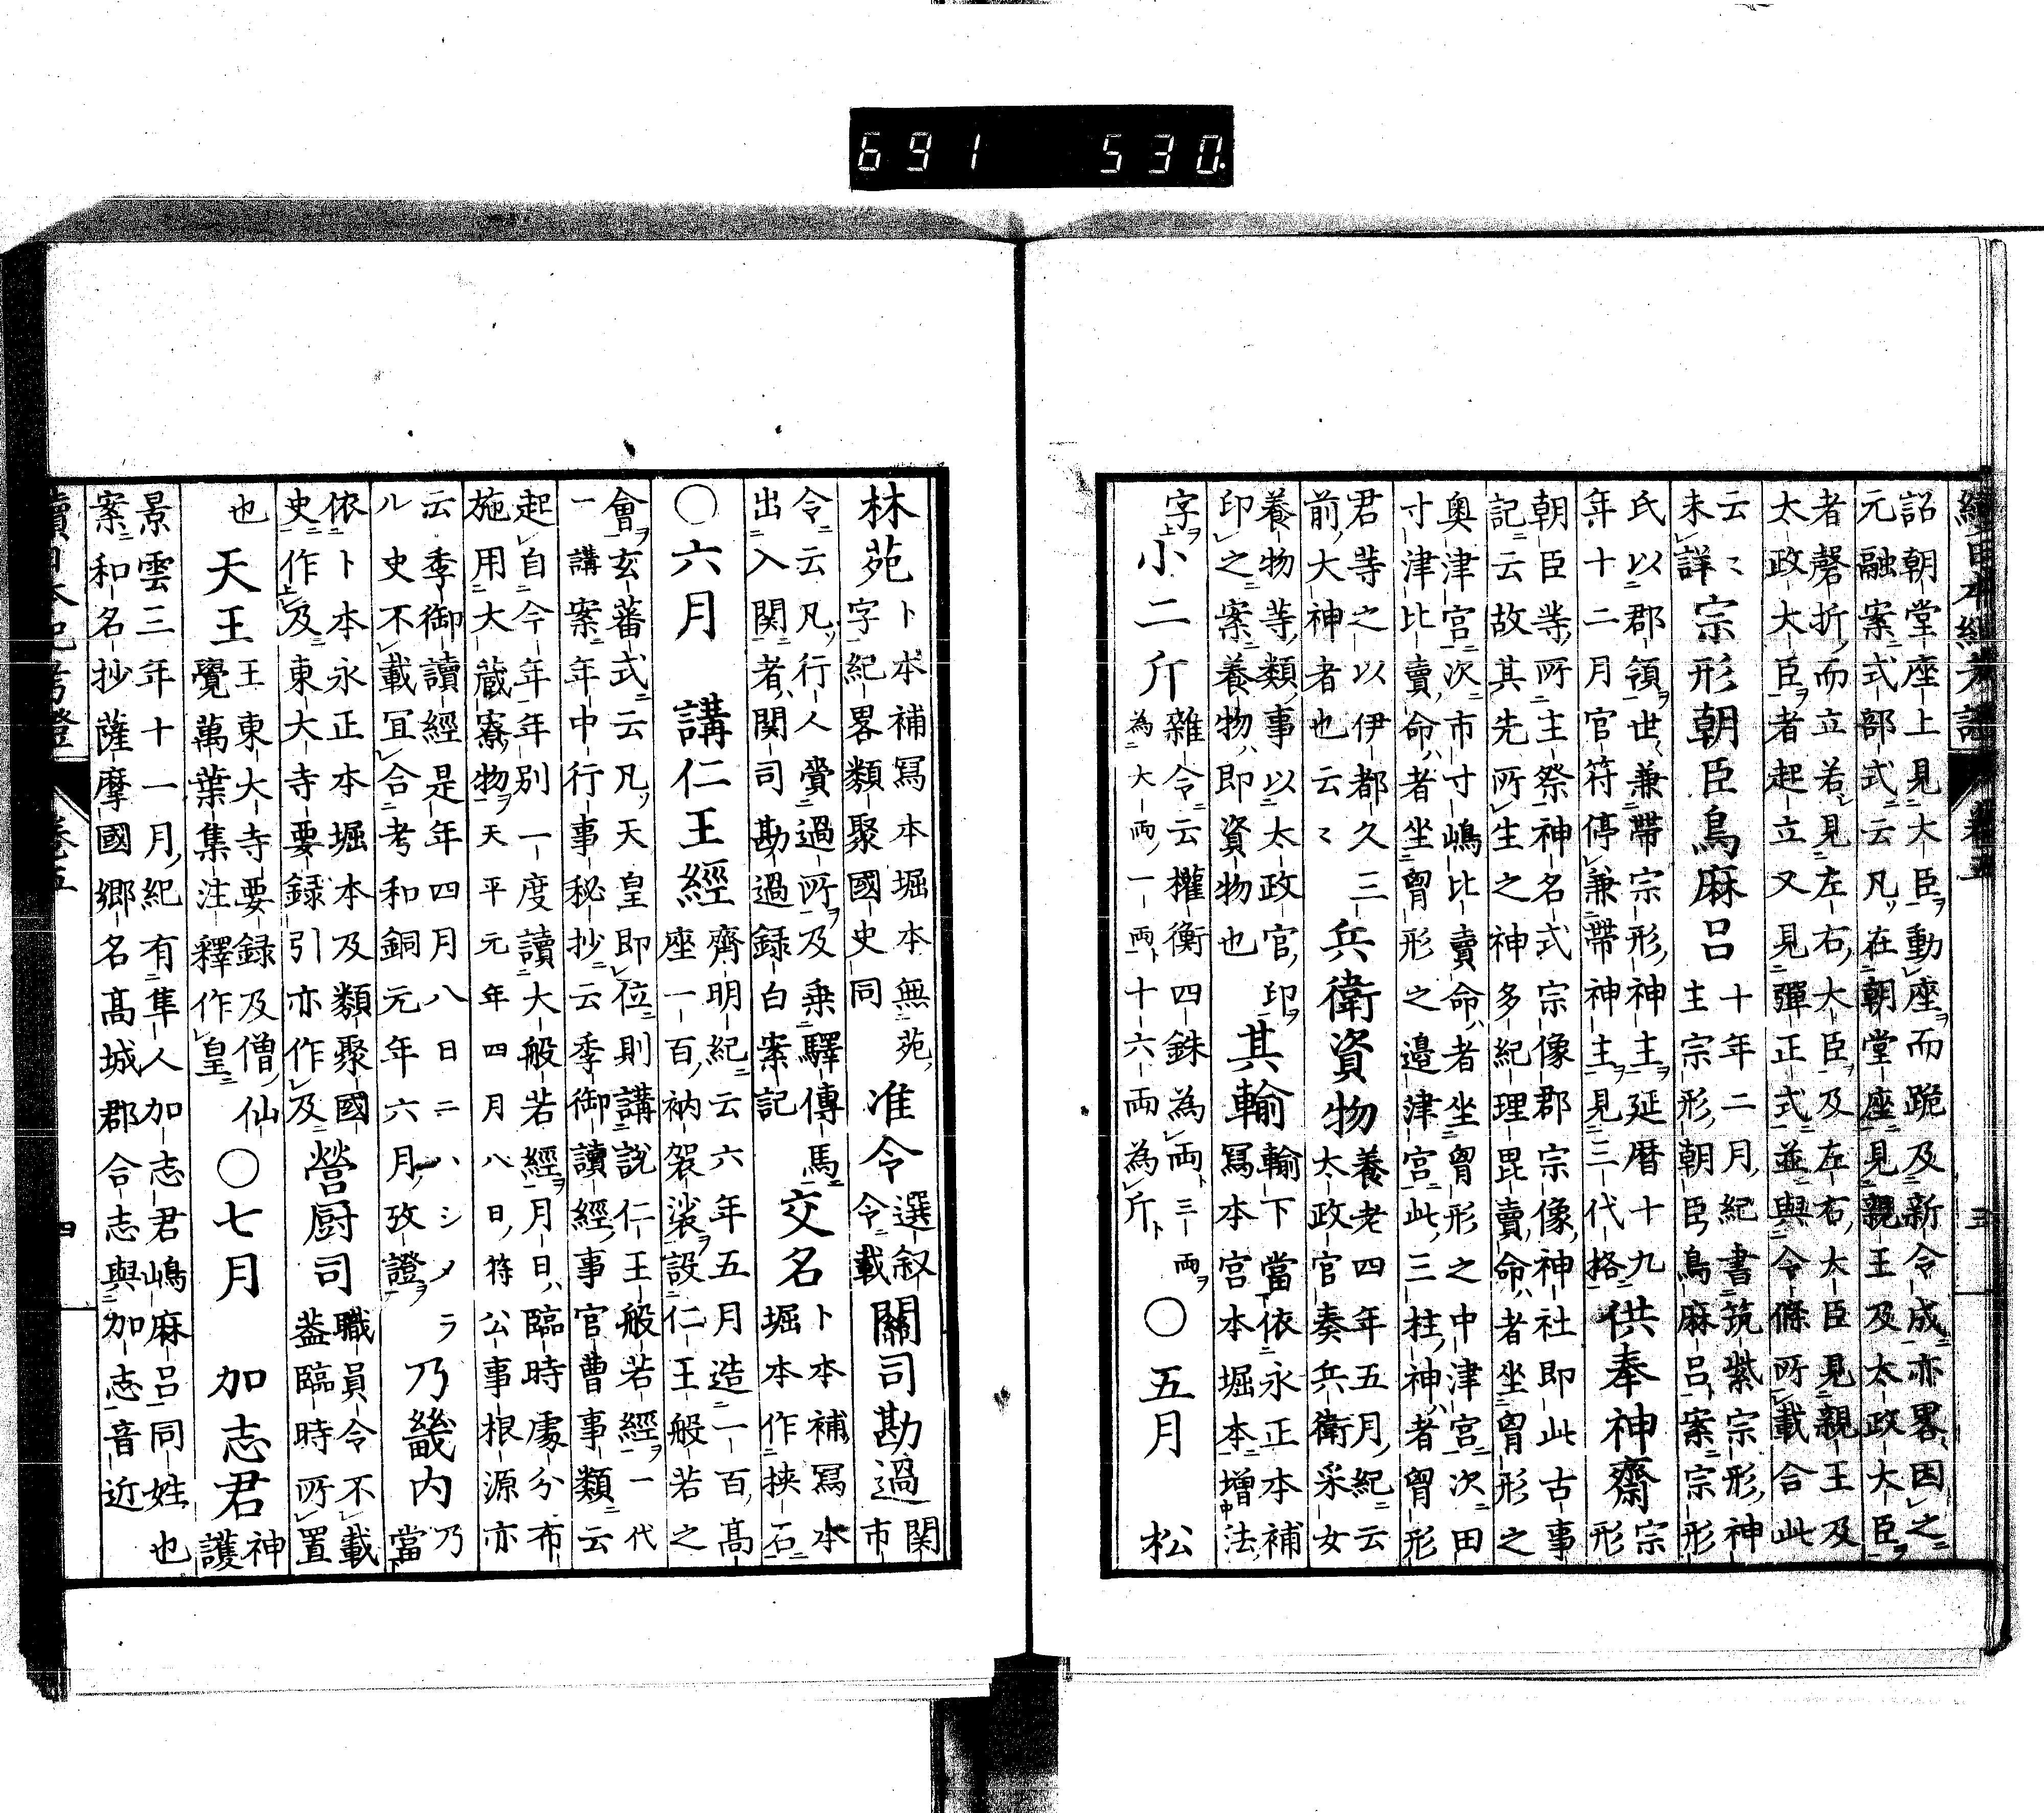 續日本紀考證 卷五 三
詔朝堂座上見大臣動座而跪及新令成亦畧因之
元融案式部式云凡在朝堂座見親王及太政大臣
者磬折而立若見左右大臣及左右大臣見親王及
太政大臣者起立又見彈正式並與令條所載合此
云〻
未詳
宗形朝臣鳥麻呂
十年二月紀書筑紫宗形神
主宗形朝臣鳥麻呂案宗形
氏以郡領世兼帶宗形神主延暦十九
年十二月官符停兼帶神主見三代格
供奉神齋
宗
形
朝臣等所主祭神名式宗像郡宗像神社即此古事
記云故其先所生之神多紀理毘賣命者坐胷形之
奧津宮次市寸嶋比賣命者坐胷形之中津宮次田
寸津比賣命者坐胷形之邉津宮此三柱神者胷形
君等之以伊都久三
前大神者也云〻
兵衛資物
養老四年五月紀云
太政官奏兵衛采女
養物等類事以太政官印
印之案養物即資物也
其輸
輸下當依永正本補
寫本宮本堀本増法
字
小二斤
雜令云權衡四銖為兩三兩
為大一兩十六兩為斤
○五月 松
林苑
卜本補寫本堀本無苑
字紀畧類聚國史同
准令
選叙
令載
關司勘過
関
市
令云凡行人賫過所及乗驛傳馬
出入関者関司勘過録白案記
交名
卜本補寫本
堀本作挟石
○六月 講仁王經
齊明紀云六年五月造一百髙
座一百衲袈裟設仁王般若之
會玄蕃式云凡天皇即位則講説仁王般若經一代
一講案年中行事秘抄云季御讀經事官曹事類云
起自今年年別一度讀大般若經月日臨時處分布
施用大蔵寮物天平元年四月八日符公事根源亦
云季御讀經是年四月八日ニハシメラ
ル史不載冝合考和銅元年六月攷證
乃畿内
乃
當
依卜本永正本堀本及類聚國
史作及東大寺要録引亦作及
營厨司
職員令不載
葢臨時所置
也
天王
王東大寺要録及僧仙
覺萬葉集注釋作皇
○七月 加志君
神
護
景雲三年十一月紀有隼人加志君嶋麻呂同姓也
案和名抄薩摩國郷名髙城郡合志與加志音近
續日本紀考證 卷五 四
691 530